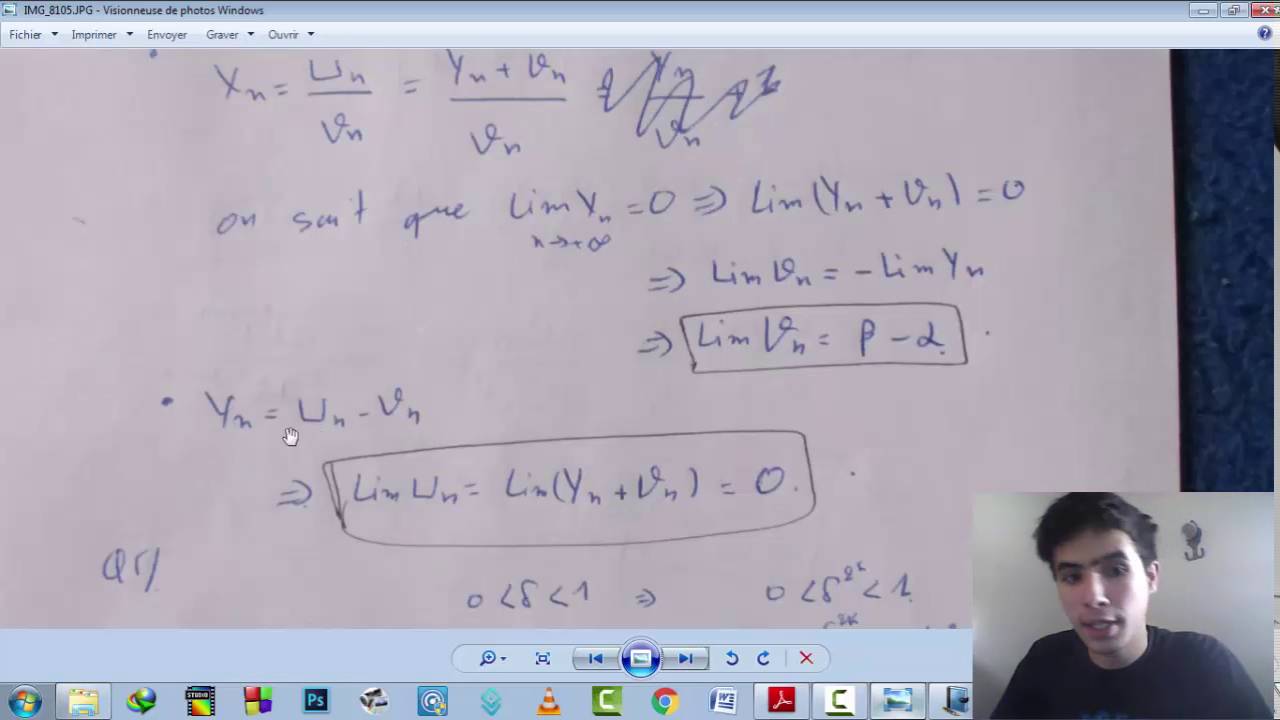 IMG_8105.JPG - Visionneuse de photos Windows
Fichier Imprimer Envoyer Graver Ouvrir
Xn = Un / Vn = Yn + Vn / Vn
on sait que Lim Xn = 0 ⇒ Lim(Yn + Vn) = 0
n→+∞
⇒ Lim Vn = - Lim Yn
⇒ Lim Vn = β - α.
• Yn = Un - Vn
⇒ Lim Un = Lim(Yn + Vn) = 0.
Q5/
0 < δ < 1 ⇒ 0 < δ^2K < 1.
2K
STUDIO
Ps
C
W
C